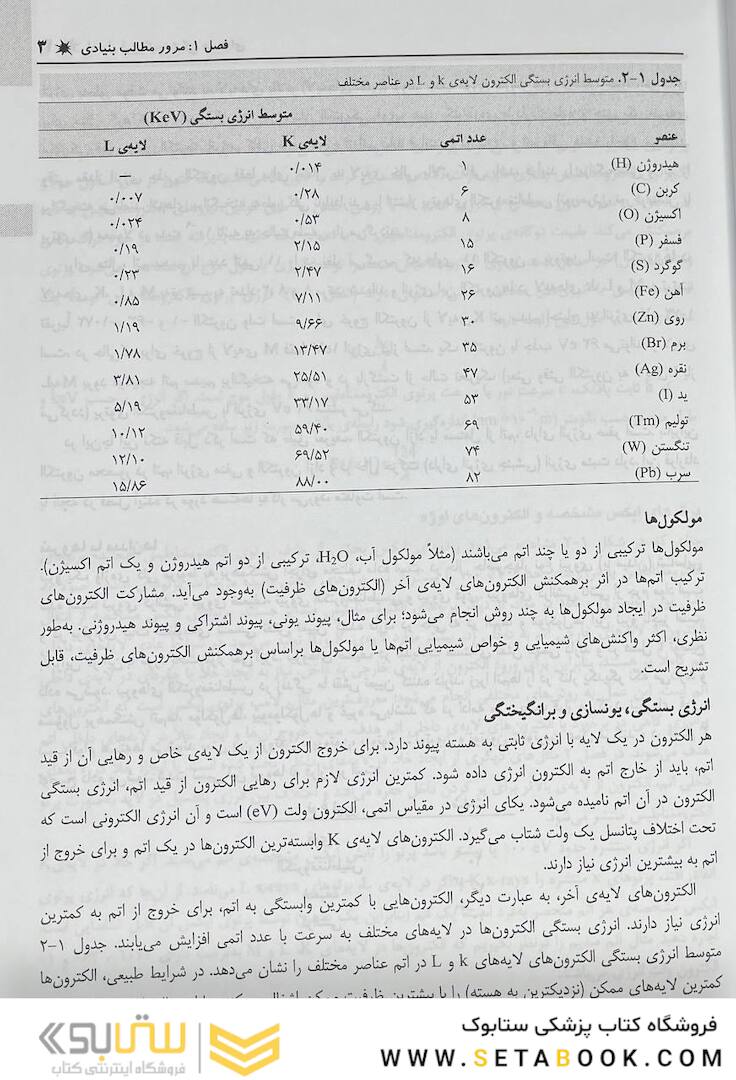 فصل ۱: مرور مطالب بنیادی ۳
جدول ۱-۲. متوسط انرژی بستگی الکترون لایه‌ی k و L در عناصر مختلف
متوسط انرژی بستگی (KeV)
عنصر عدد اتمی لایه‌ی K لایه‌ی L
هیدروژن (H) ۱ ۰/۰۱۴ —
کربن (C) ۶ ۰/۲۸ ۰/۰۰۷
اکسیژن (O) ۸ ۰/۵۳ ۰/۰۲۴
فسفر (P) ۱۵ ۲/۱۵ ۰/۱۹
گوگرد (S) ۱۶ ۲/۴۷ ۰/۲۳
آهن (Fe) ۲۶ ۷/۱۱ ۰/۸۵
روی (Zn) ۳۰ ۹/۶۶ ۱/۱۹
برم (Br) ۳۵ ۱۳/۴۷ ۱/۷۸
نقره (Ag) ۴۷ ۲۵/۵۱ ۳/۸۱
ید (I) ۵۳ ۳۳/۱۷ ۵/۱۹
تولیم (Tm) ۶۹ ۵۹/۴۰ ۱۰/۱۲
تنگستن (W) ۷۴ ۶۹/۵۲ ۱۲/۱۰
سرب (Pb) ۸۲ ۸۸/۰۰ ۱۵/۸۶
مولکول‌ها
مولکول‌ها ترکیبی از دو یا چند اتم می‌باشند (مثلاً مولکول آب، H₂O، ترکیبی از دو اتم هیدروژن و یک اتم اکسیژن).
ترکیب اتم‌ها در اثر برهمکنش الکترون‌های لایه‌ی آخر (الکترون‌های ظرفیت) به‌وجود می‌آید. مشارکت الکترون‌های
ظرفیت در ایجاد مولکول‌ها به چند روش انجام می‌شود؛ برای مثال، پیوند یونی، پیوند اشتراکی و پیوند هیدروژنی. به‌طور
نظری، اکثر واکنش‌های شیمیایی و خواص شیمیایی اتم‌ها یا مولکول‌ها براساس برهمکنش الکترون‌های ظرفیت، قابل
تشریح است.
انرژی بستگی، یونسازی و برانگیختگی
هر الکترون در یک لایه با انرژی ثابتی به هسته پیوند دارد. برای خروج الکترون از یک لایه‌ی خاص و رهایی آن از قید
اتم، باید از خارج اتم به الکترون انرژی داده شود. کمترین انرژی لازم برای رهایی الکترون از قید اتم، انرژی بستگی
الکترون در آن اتم نامیده می‌شود. یکای انرژی در مقیاس اتمی، الکترون ولت (eV) است و آن انرژی الکترونی است که
تحت اختلاف پتانسل یک ولت شتاب می‌گیرد. الکترون‌های لایه‌ی K وابسته‌ترین الکترون‌ها در یک اتم و برای خروج از
اتم به بیشترین انرژی نیاز دارند.
الکترون‌های لایه‌ی آخر، به عبارت دیگر، الکترون‌هایی با کمترین وابستگی به اتم، برای خروج از اتم به کمترین
انرژی نیاز دارند. انرژی بستگی الکترون‌ها در لایه‌های مختلف به سرعت با عدد اتمی افزایش می‌یابند. جدول ۱-۲
متوسط انرژی بستگی الکترون‌های لایه‌های k و L در اتم عناصر مختلف را نشان می‌دهد. در شرایط طبیعی، الکترون‌ها
کمترین لایه‌های ممکن (نزدیکترین به هسته) را با بیشترین ظرفیت ممکن
فروشگاه کتاب پزشکی ستابوک
WWW.SETABOOK.COM
ستابوک
فروشگاه اینترنتی کتاب